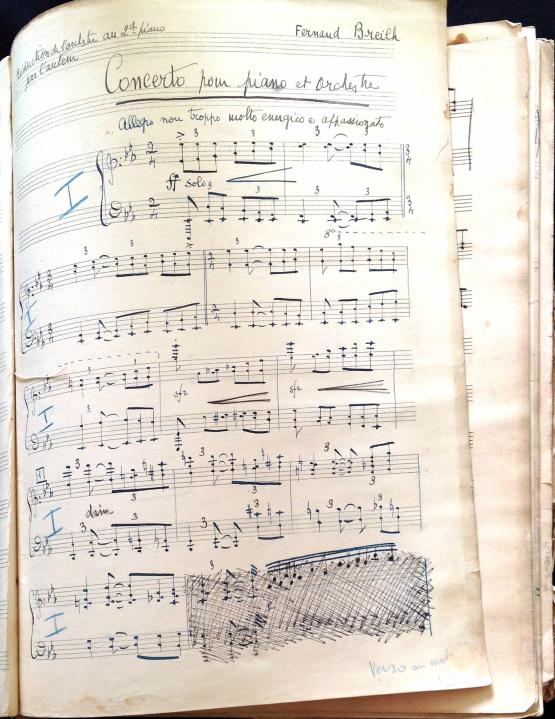 Réduction de l'orchestre au 2d piano
par l'auteur
Fernand Breilh
Concerto pour piano et orchestre
Allegro non troppo molto energico e appassionato
I
3 3 3 3
2/4 3/4
ff solo 3 3
2/4 3/4
8º
I
3 3 3
3/4
I
3 3
sfz sfz
I
3 3 3 3 3
dim
3 3 3 3
I
3
Verso au